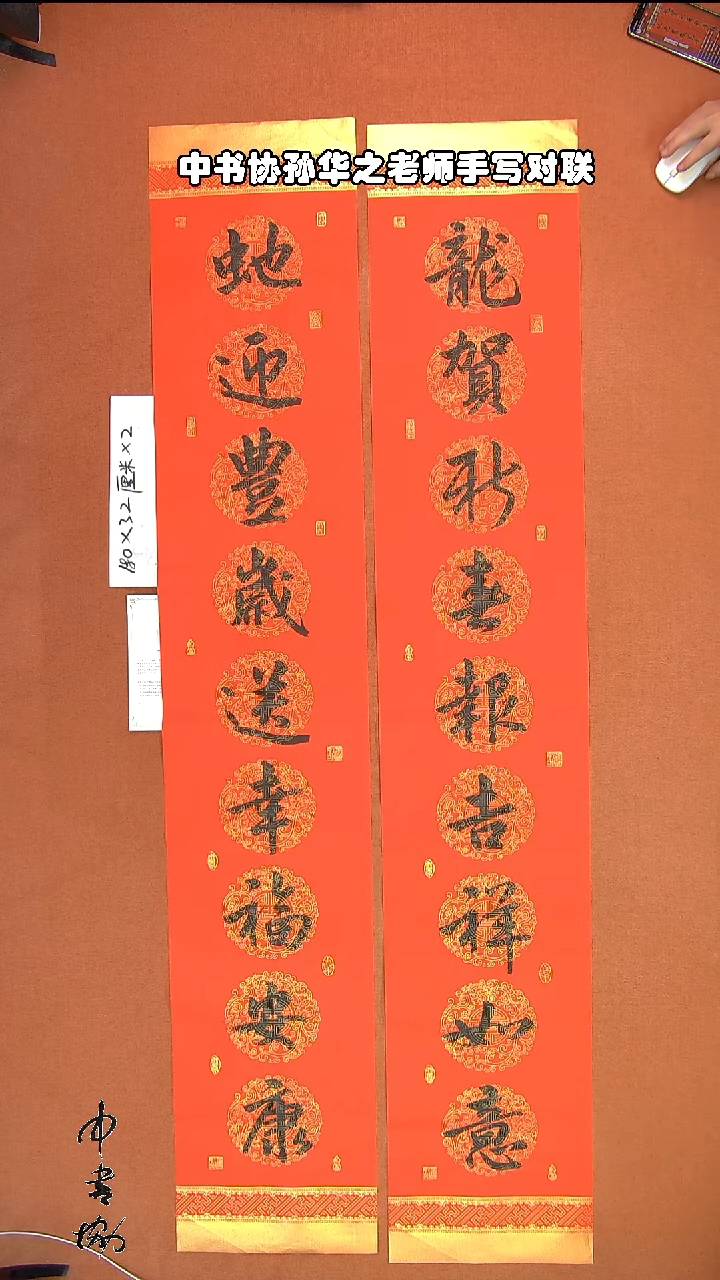 中书协孙华之老师手写对联
龍賀新春報吉祥如意
虵迎豐歲送幸福安康
180×32厘米×2
中書協